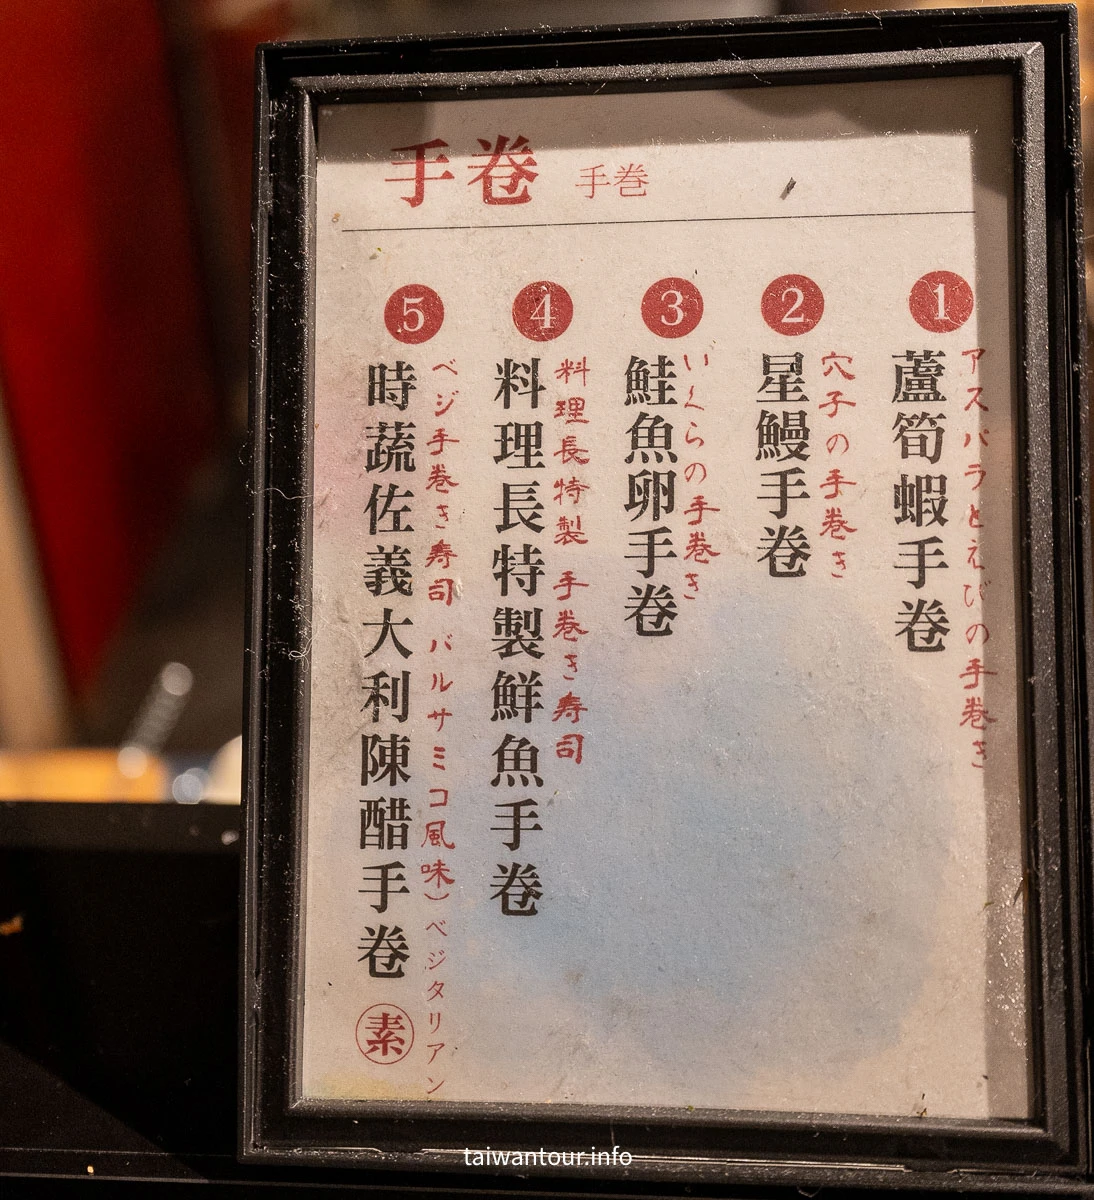 手卷 手巻
1
アスパラとえびの手巻き
蘆筍蝦手卷
2
穴子の手巻き
星鰻手卷
3
いくらの手巻き
鮭魚卵手卷
4
料理長特製 手巻き寿司
料理長特製鮮魚手卷
5
ベジ手巻き寿司 バルサミコ風味）ベジタリアン
時蔬佐義大利陳醋手卷 素
taiwantour.info